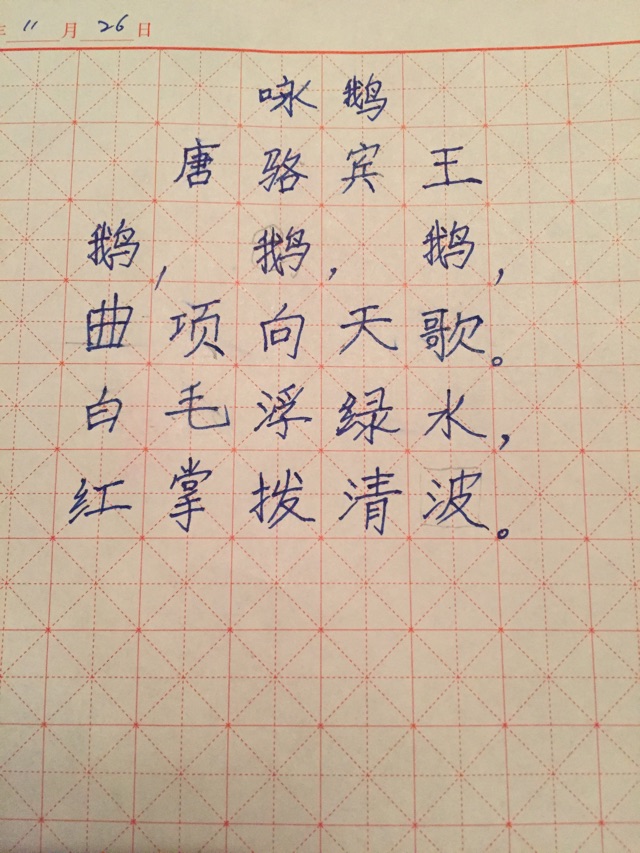 年 11 月 26 日
咏鹅
唐 骆宾王
鹅，鹅，鹅，
曲项向天歌。
白毛浮绿水，
红掌拨清波。